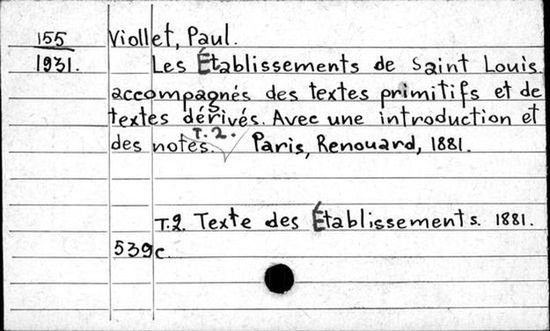 155 Viollet, Paul.
1931. Les Établissements de Saint Louis
accompagnés des textes primitifs et de
textes dérivés. Avec une introduction et
T.2.
des notes. Paris, Renouard, 1881.
T.2. Texte des Établissements. 1881.
539c.